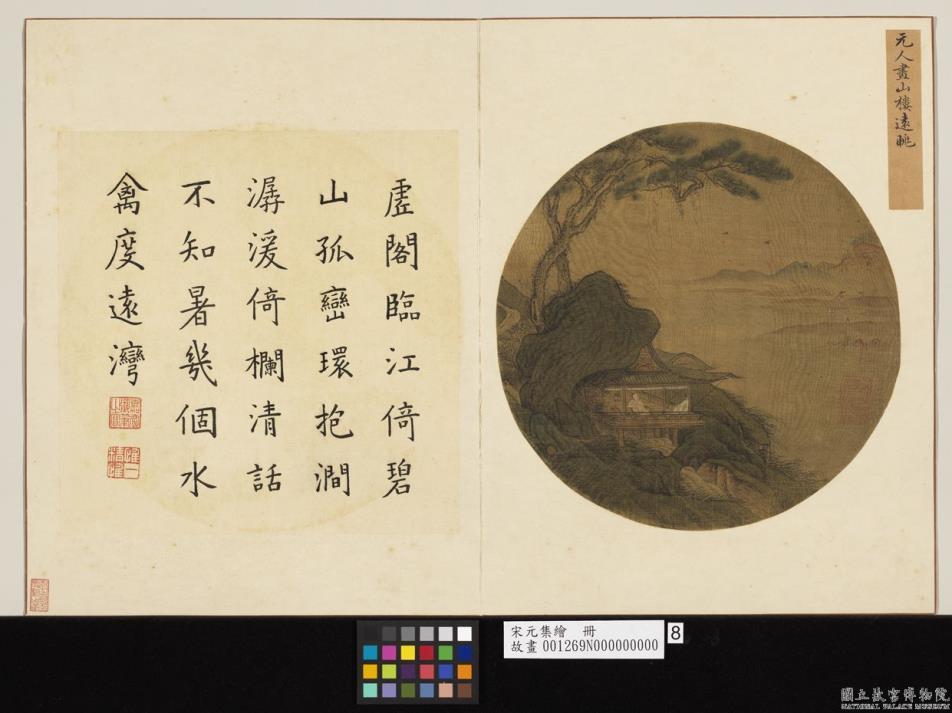 元人畫山樓遠眺
虛閣臨江倚碧
山孤巒環抱澗
潺湲倚欄清話
不知暑幾個水
禽度遠灣
宋元集繪 冊
故畫 001269N000000000
8
國立故宮博物院
NATIONAL PALACE MUSEUM